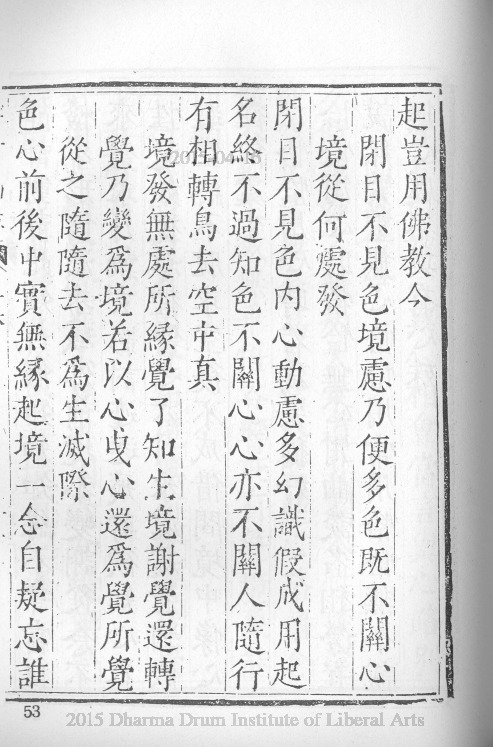 起豈用佛教今
閉目不見色境慮乃便多色既不關心
境從何處發
閉目不見色內心動慮多幻識假成用起
名終不過知色不關心心亦不關人隨行
有相轉鳥去空中真
境發無處所緣覺了知生境謝覺還轉
覺乃變爲境若以心曳心還爲覺所覺
從之隨隨去不爲生滅際
色心前後中實無緣起境一念自疑忘誰
53
2015 Dharma Drum Institute of Liberal Arts